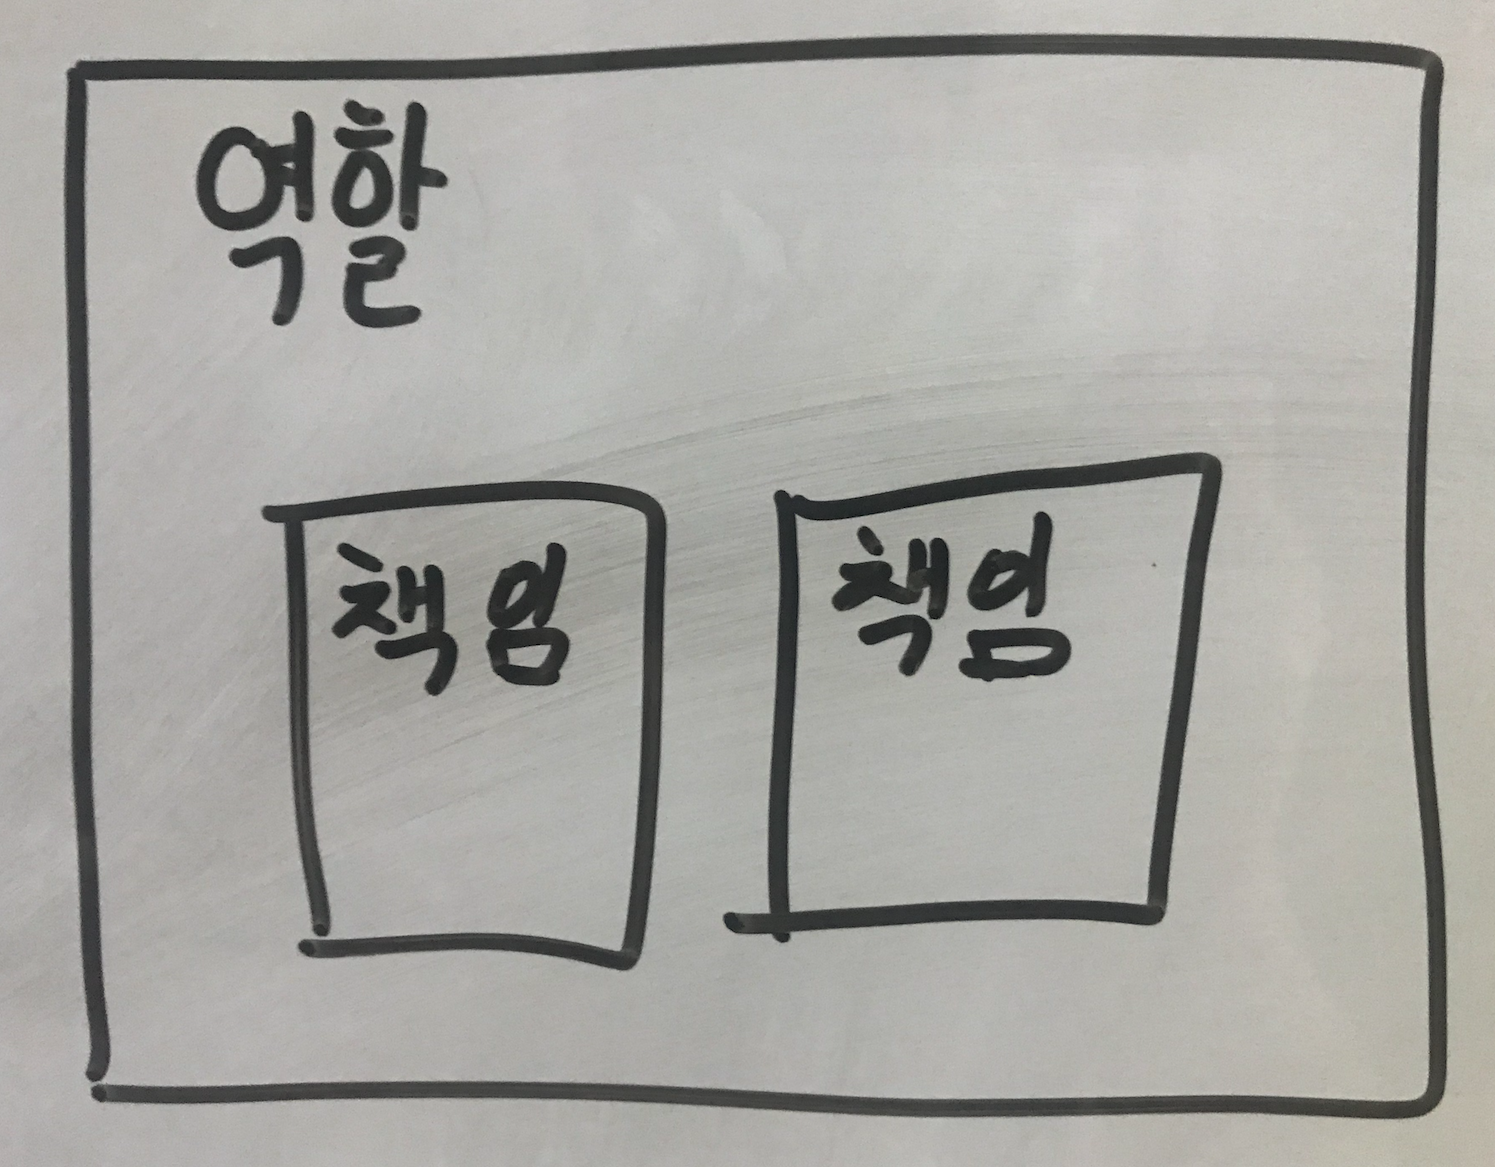 역할
책임
책임